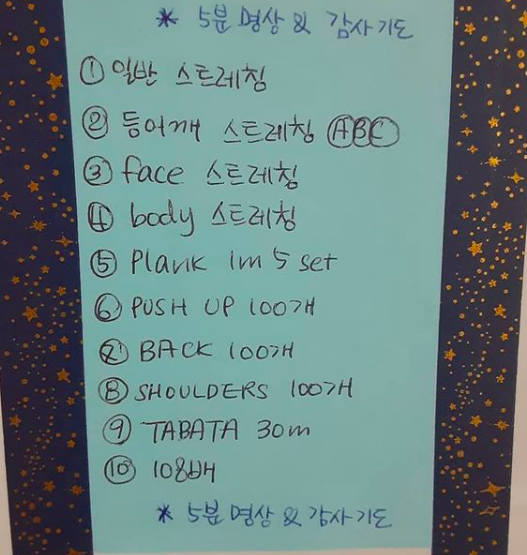 * 5분 명상 & 감사기도
① 일반 스트레칭
② 등어깨 스트레칭 ⒶⒷⒸ
③ face 스트레칭
④ body 스트레칭
⑤ Plank 1m 5 set
⑥ PUSH UP 100개
⑦ BACK 100개
⑧ SHOULDERS 100개
⑨ TABATA 30m
⑩ 108배
* 5분 명상 & 감사기도